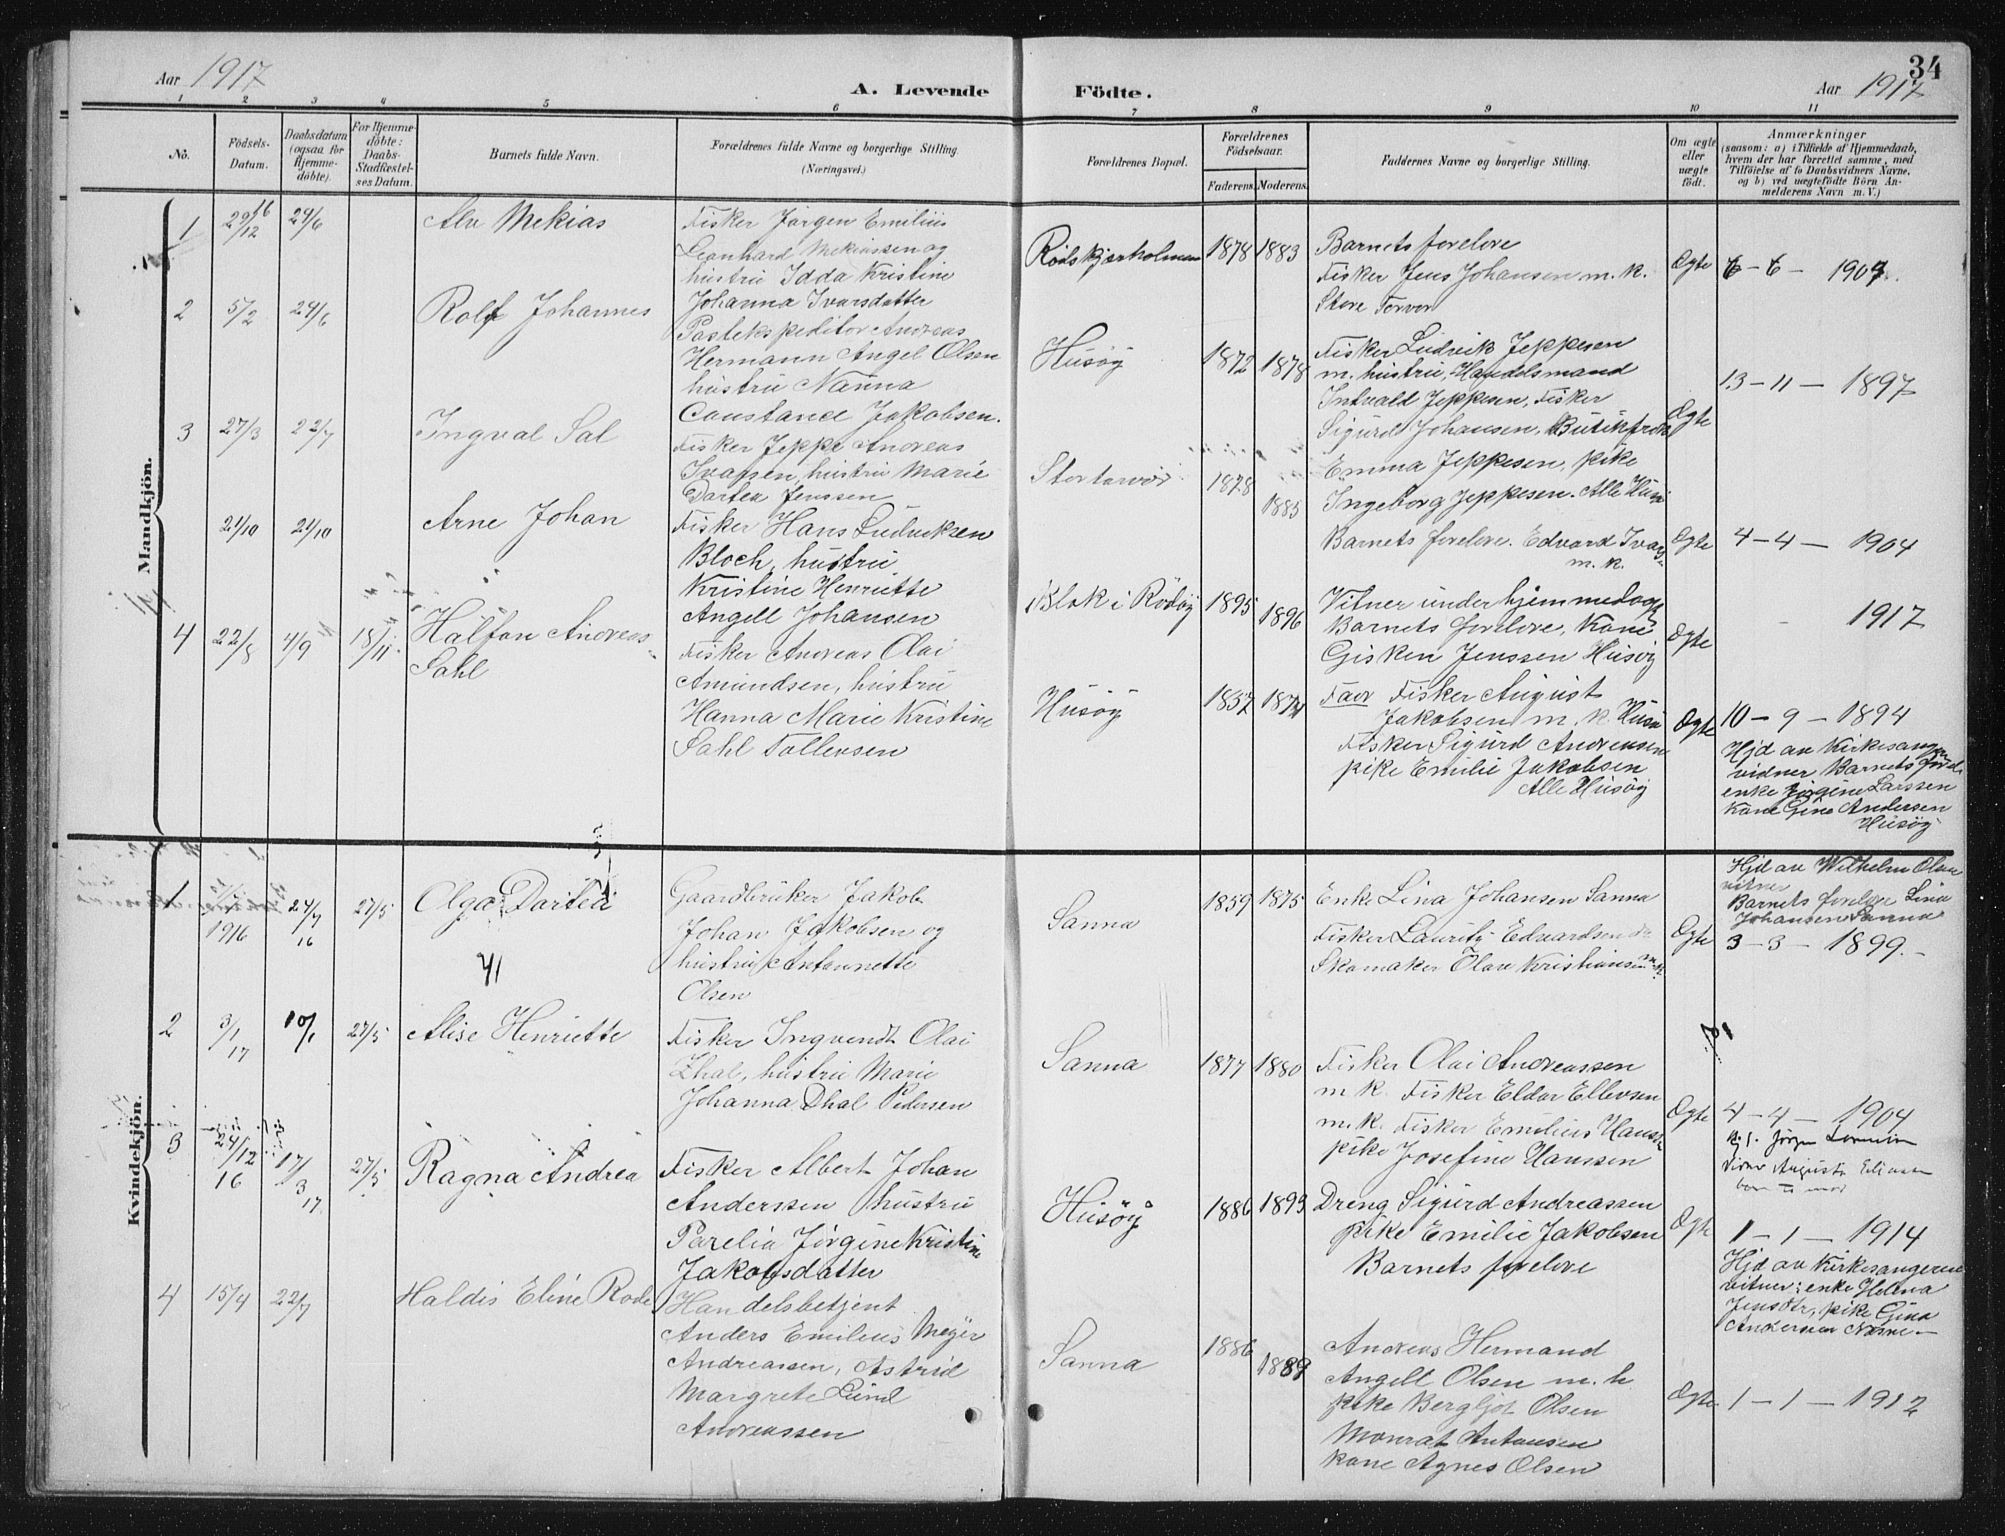 34
Aar 1917
A. Levende
Födte.
Aar 1917
1 2 3 4 5 6 7 8 9 10 11
No.
Födsels-
Datum.
Daabsdatum
(ogsaa for
Hjemme-
döbte).
For Hjemme-
döbte:
Daabs-
Stadfæstel-
ses Datum.
Barnets fulde Navn.
Forældrenes fulde Navne og borgerlige Stilling
(Næringsvei.)
Forældrenes Bopæl.
Forældrenes
Födselsaar.
Faderens. Moderens.
Faddernes Navne og borgerlige Stilling.
Om ægte
eller
uægte
födt.
Anmærkninger
(saasom: a) i Tilfælde af Hjemmedaab,
hvem der har forrettet samme, med
Tilföielse af to Daabsvidners Navne,
og b) ved uægtefödte Börn An-
melderens Navn m. V.)
Mandkjön.
1 29/12 16 24/6
Alv Mekias
Fisker Jörgen Emilius
Leonhard Mekiassen og
hustru Idda Kristine
Johanna Ivarsdatter
Rödskjærholmen 1878 1883
Barnets forelore
Fisker Jens Johansen m. k.
Store Torvor
Ægte
6-6- 1907.
2 5/2 24/6
Rolf Johannes
Postekspeditor Andreas
Hermann Angel Olsen
hustru Nanna
Constance Jakobsen.
Husöy 1872 1878
Fisker Ludvik Jeppesen
m. hustru, Handelsmand
Intvald Jeppesen, Fisker
Sigurd Johansen,
Emma Jeppesen, pike
Ingeborg Jeppesen. Alle
Ægte
13-11- 1897
3 27/3 22/7
Ingval Sal
Fisker Jeppe Andreas
hustru Marie
Dortea Jenssen
1878 1885
Barnets forelore. Edvard
m. k.
Ægte
4-4- 1904
21/10 21/10
Arne Johan
Fisker Hans Ludviksen
Bloch, hustru
Kristine Henriette
Angell Johansen
i Rödöy 1895 1896
Vitner under hjemmedaab
Barnets forelore, Kone
Gisken Jenssen Husöy
Ægte
1917
4 22/8 4/9 18/11
Halfan Andreas
Sahl
Fisker Andreas Olai
Amundsen, hustru
Hanna Marie Kristine
Sahl Tollevsen
Husöy 1857
Fisker August
Jakobsen m. k.
Fisker Sigurd Andreasen
pike Emilie Jakobsen
Alle Husöy
Ægte
10-9-1894
Hjd av Kirkesanger
vidner Barnets
enke Jörgine Larssen
Kone Gine Andersen
Husöy
Kvindekjön.
1 1916 24/7 16 27/5
Olga Dortea
Gaardbruker Jakob
Johan Jakobsen og
hustru Antonnette
Olsen
Sanna 1859 1875
Enke Lina Johansen Sanna
Fisker Lauritz Edvardsen
Skomaker Olav Kristiansen
Ægte
Hjd av Wilhelm Olsen
vitner
Barnets forelore Lina
Johansen Sanna
3-3- 1899.-
2 3/1 17 10/1 27/5
Alise Henriette
Fisker Ingvendt Olai
Dhal, hustru Marie
Johanna Dhal Pedersen
Sanna 1877 1880
Fisker Olai Andreassen
m. k. Fisker Eldor Ellevsen
m. k. Fisker Emilius
pike Josefine Hanssen
Ægte
4-4- 1904
3 24/12 16 17/3 17 27/5
Ragna Andrea
Fisker Albert Johan
Anderssen hustru
Parelia Jörgine Kristine
Jakobsdatter
Husöy 1886 1893
Dreng Sigurd Andreassen
pike Emilie Jakobsen
Barnets forelore
Ægte
1-1-1914
Hjd av Kirkesangeren
vitner: enke Helena
Jensdtr, pike Gina
Andersen
4 15/4 22/7
Haldis Eline Rode
Handelsbetjent
Anders Emilius Meyer
Andreassen, Astrid
Margrete Lund
Andreassen
Sanna 1886 1889
Andreas Hermand
Angell Olsen m. h
pike Bergljot Olsen
Monrat Antonsen
kone Agnes Olsen
Ægte
1-1-1912